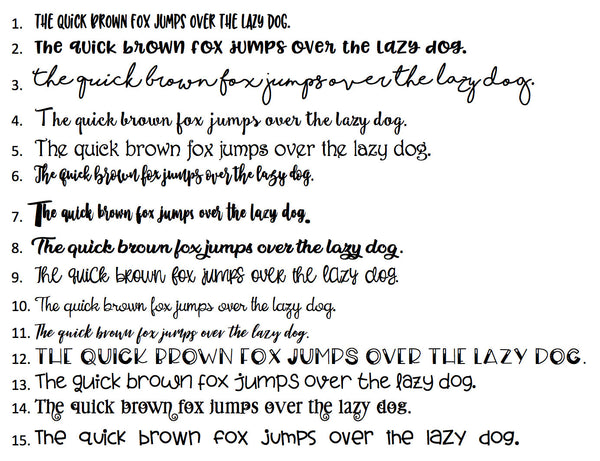 1. THE QUICK BROWN FOX JUMPS OVER THE LAZY DOG.
2. The quick brown fox jumps over the lazy dog.
3. the quick brown fox jumps over the lazy dog.
4. The quick brown fox jumps over the lazy dog.
5. The quick brown fox jumps over the lazy dog.
6. The quick brown fox jumps over the lazy dog.
7. The quick brown fox jumps over the lazy dog.
8. The quick brown fox jumps over the lazy dog.
9. The quick brown fox jumps over the lazy dog.
10. The quick brown fox jumps over the lazy dog.
11. The quick brown fox jumps over the lazy dog.
12. THE QUICK BROWN FOX JUMPS OVER THE LAZY DOG.
13. The quick brown fox jumps over the lazy dog.
14. The quick brown fox jumps over the lazy dog.
15. The quick brown fox jumps over the lazy dog.